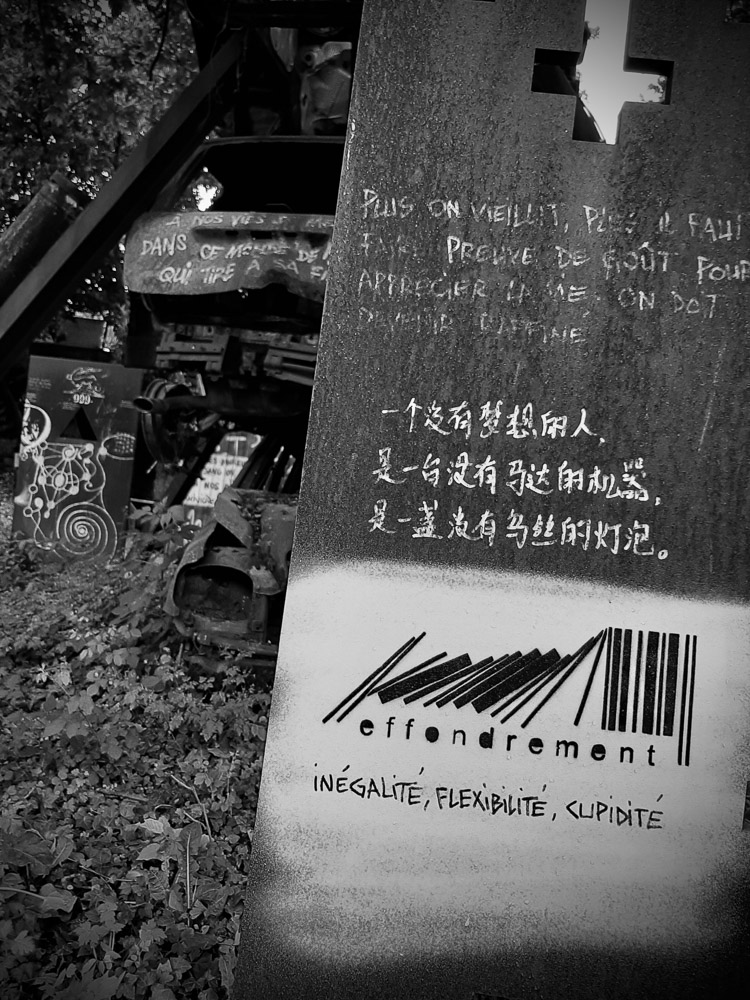 PLUS ON VIEILLIT, PLUS IL FAUT
FAIRE PREUVE DE GOÛT POUR
APPRÉCIER LA VIE, ON DOIT
DEVENIR RAFFINÉ
一个没有梦想的人，
是一台没有马达的机器，
是一盏没有乌丝的灯泡。
effondrement
iNÉGALiTÉ, FLEXiBiLiTÉ, CUPiDiTÉ
À NOS VIES
DANS CE MONDE DE
QUI TIRE À SA
999